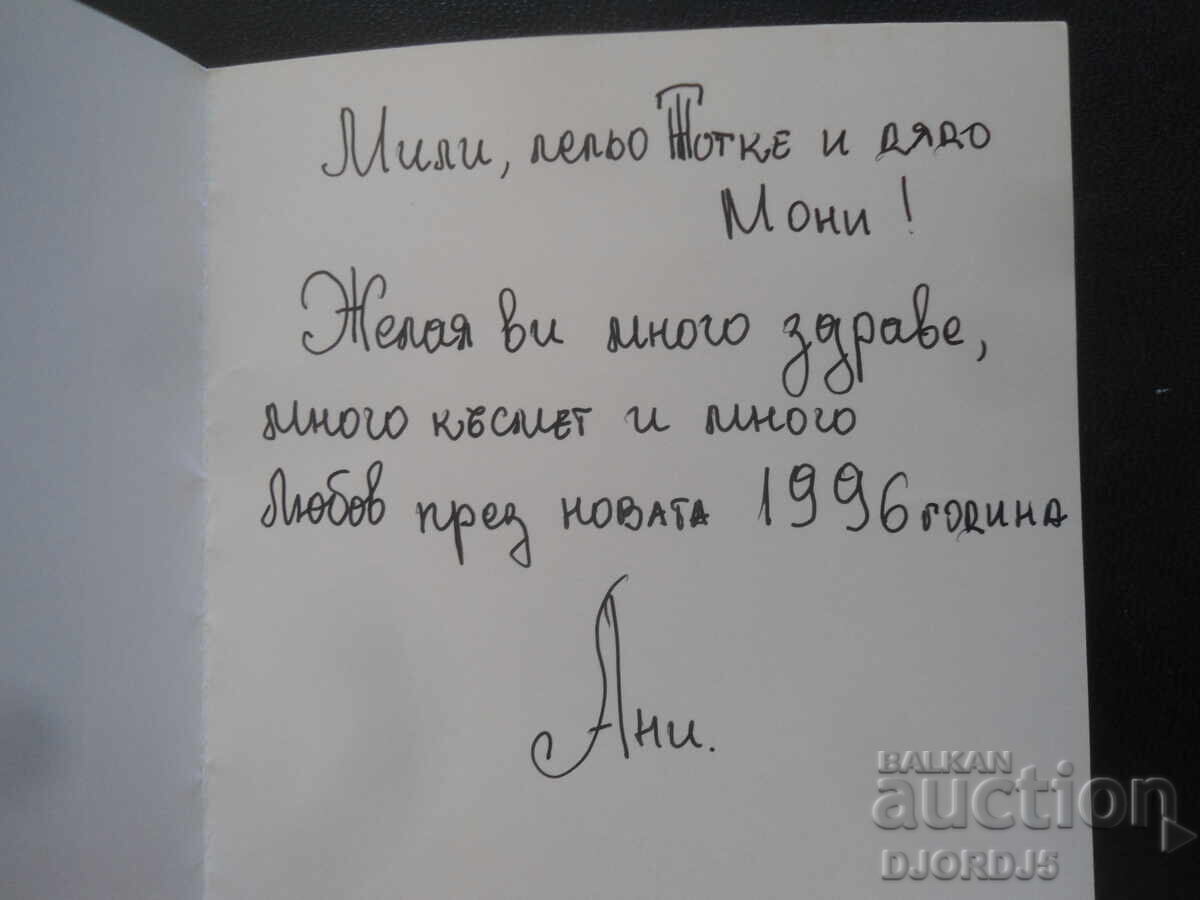 Мили, лельо Тотке и дядо
Мони!
Желая ви много здраве,
много късмет и много
любов през новата 1996 година
Ани.
BALKAN
auction
DJORDJ5